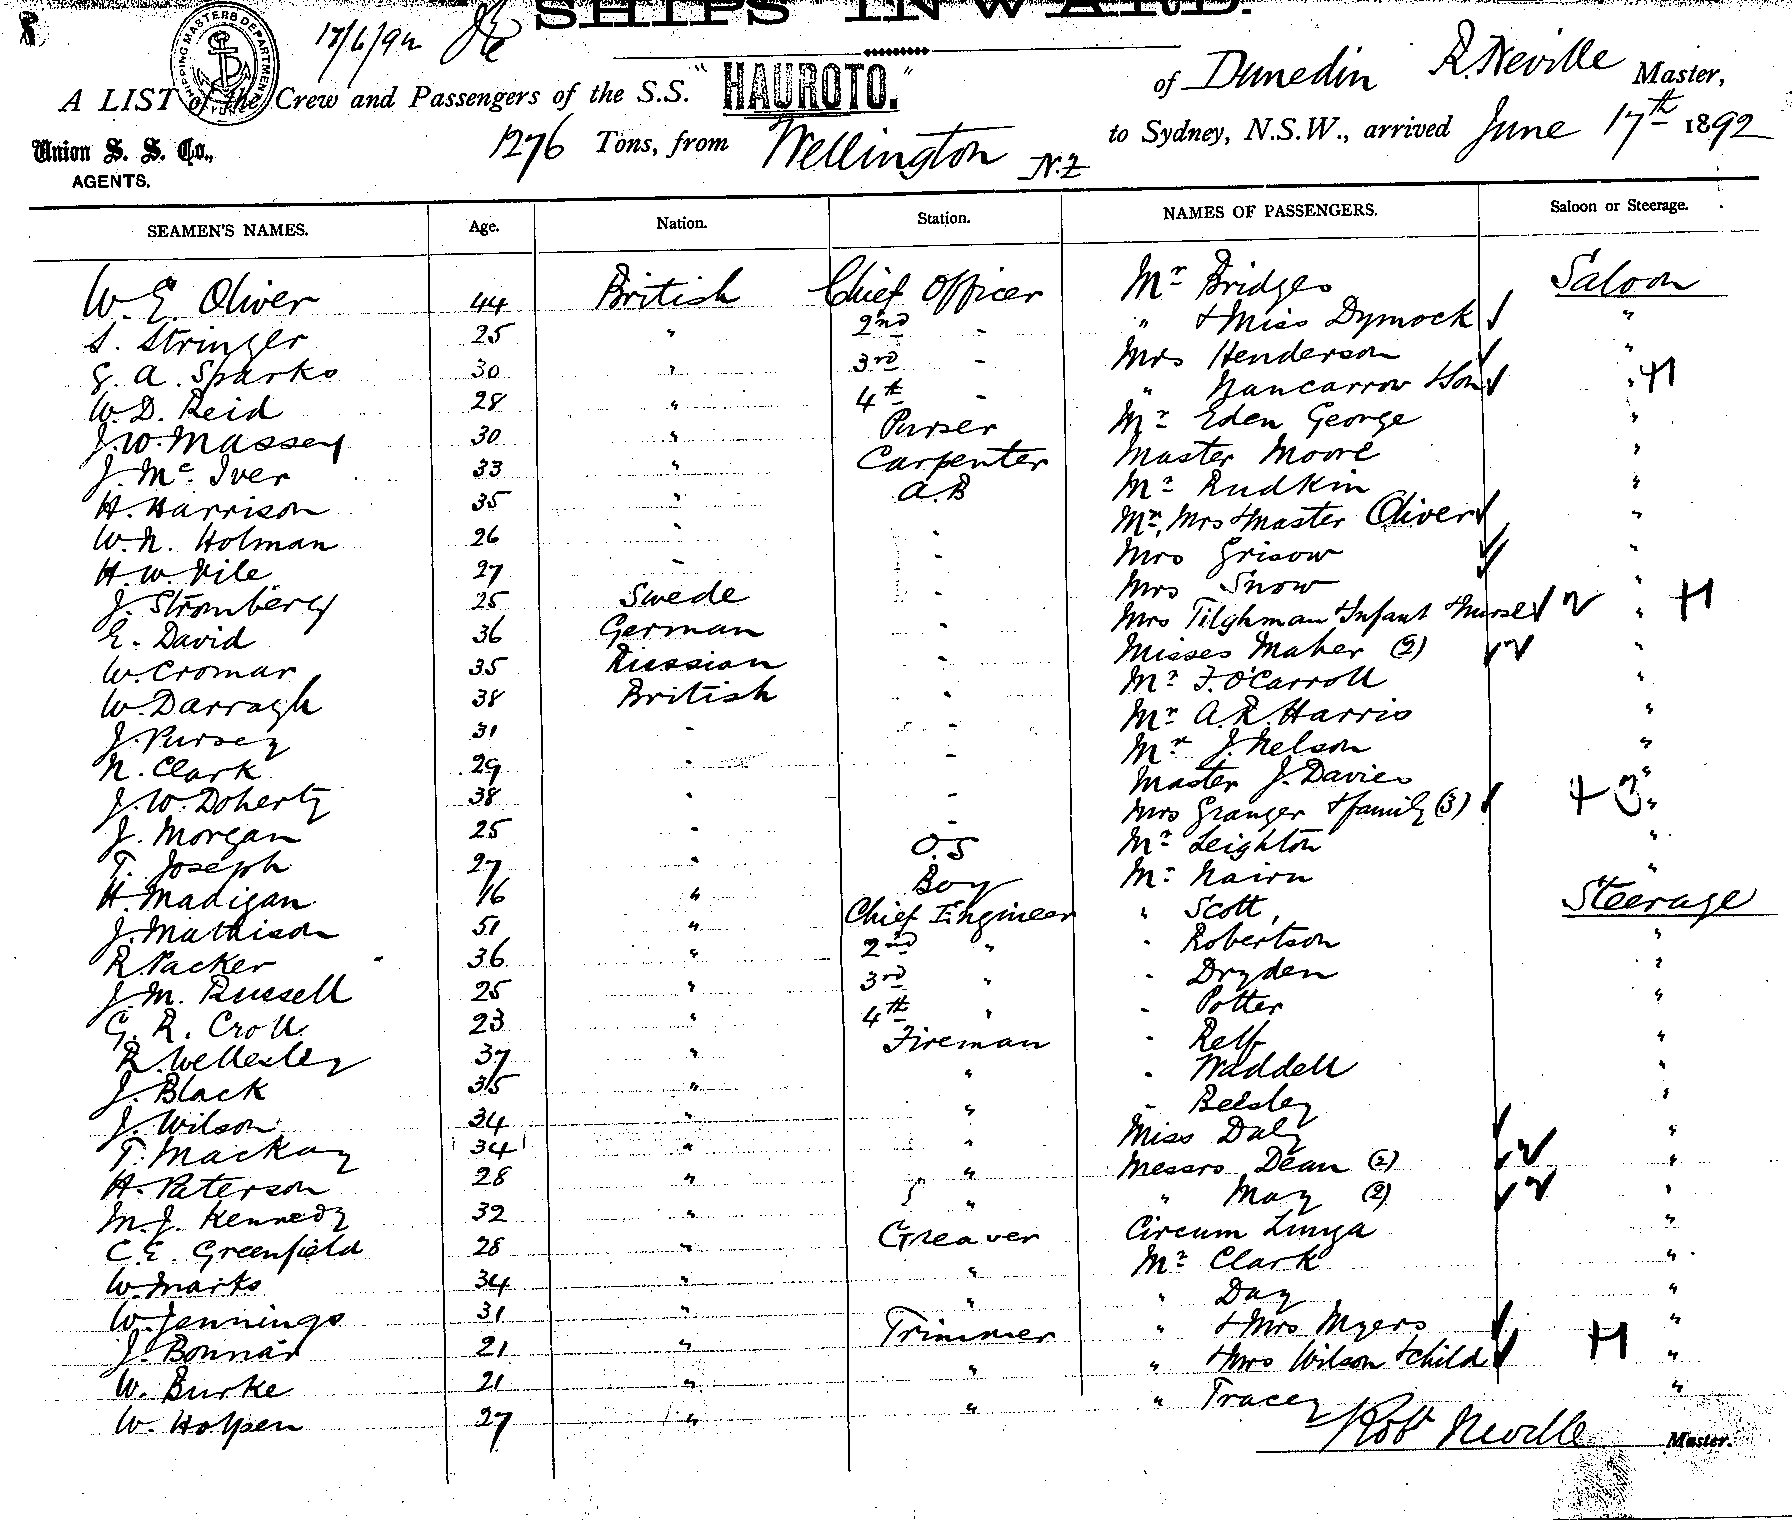 SHIPS INWARD.
17/6/92
A LIST of the Crew and Passengers of the S.S. "HAUROTO." of Dunedin R. Neville Master,
Union S. S. Co., AGENTS. 1276 Tons, from Wellington N.Z to Sydney, N.S.W., arrived June 17th 1892
SEAMEN'S NAMES. Age. Nation. Station. NAMES OF PASSENGERS. Saloon or Steerage.
W. E. Oliver 44 British Chief Officer Mr Bridges Saloon
S. Stringer 25 " 2nd - " & Miss Dymock "
G. A. Sparks 30 " 3rd - Mrs Henderson "
W. D. Reid 28 " 4th - " Nancarrow & Son "
J. W. Massey 30 " Purser Mr Eden George "
J. Mc Iver 33 " Carpenter Master Moore "
H. Harrison 35 " A.B Mr Rudkin "
W. N. Holman 26 " " Mr, Mrs & Master Oliver "
H. W. Vile 27 " " Mrs Grisow "
J. Stromberg 25 Swede " Mrs Snow "
E. David 36 German " Mrs Tilghman & Infant & Nurse "
W. Cromar 35 Russian " Misses Maher (2) "
W. Darragh 38 British " Mr F. O'Carroll "
J. Pursey 31 " " Mr A. R. Harris "
N. Clark 29 " " Mr J. Nelson "
J. W. Doherty 38 " " Master J. Davies "
J. Morgan 25 " O.S Mrs Granger & family (3) "
T. Joseph 27 " " Mr Leighton "
H. Madigan 16 " Boy Mr Nairn "
J. Mathison 51 " Chief Engineer " Scott, Steerage
R. Packer 36 " 2nd " - Robertson "
J. M. Russell 25 " 3rd " - Dryden "
G. R. Croll 23 " 4th " - Potter "
R. Wellesley 37 " Fireman - Relf "
J. Black 35 " " - Waddell "
J. Wilson 34 " " - Beesley "
T. Mackay 34 " " Miss Daly "
H. Paterson 28 " " Messrs Dean (2) "
M. J. Kennedy 32 " " " May (2) "
C. E. Greenfield 28 " Greaser Circum Lunga "
W. Marks 34 " " Mr Clark "
W. Jennings 31 " " " Day "
J. Bonnar 21 " Trimmer " & Mrs Myers "
W. Burke 21 " " " & Mrs Wilson & child "
W. Holpen 27 " " " Tracey "
Robt Neville Master.